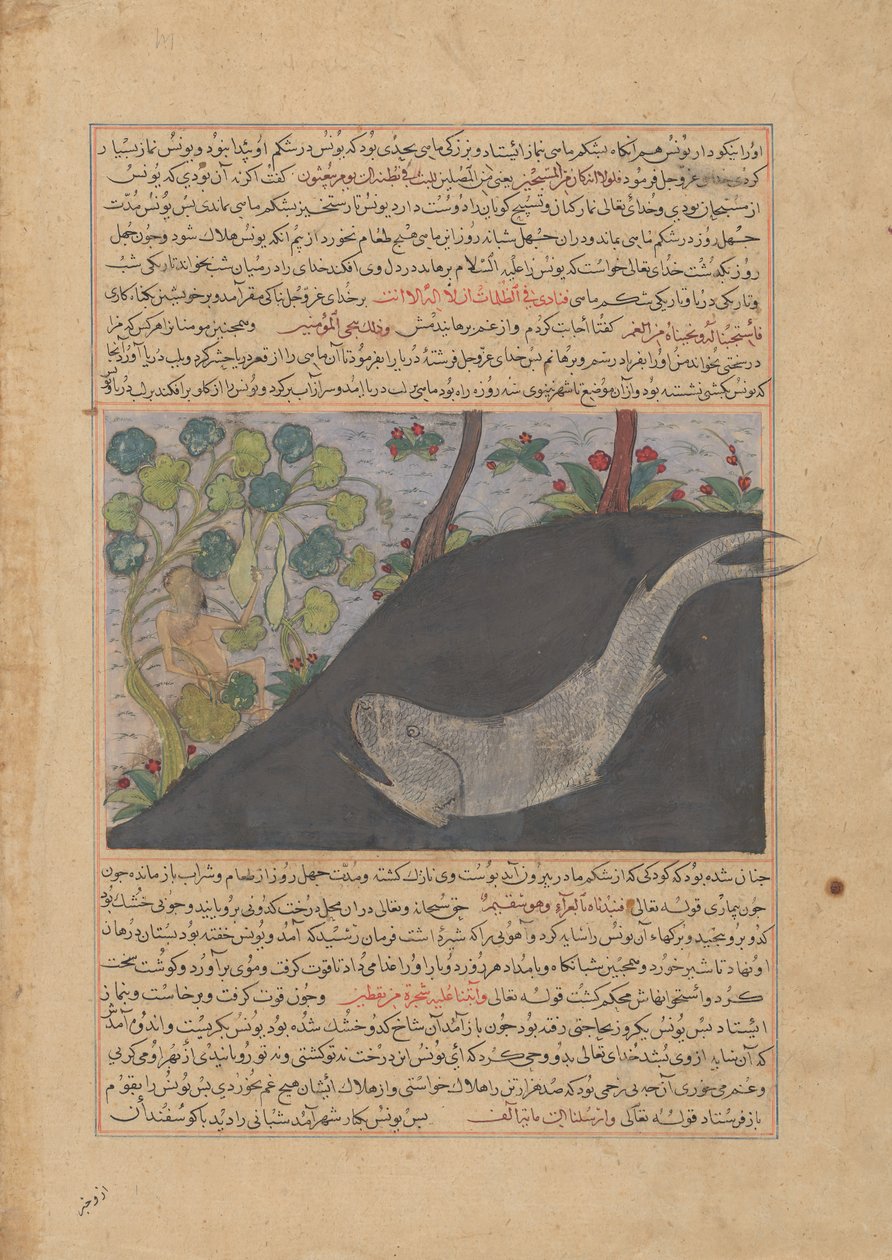 اورا نیکو دار یونس هم آنکاه بشکم ماهی نماز ائیستاد و بزرکی ماهی بحدی بود که یونس در شکم او پیدا نبود و یونس نماز بسیار
کردی خدای عزوجل فرمود فلولا انه کان من المسبحین یعنی من المصلین للبث فی بطنه الی یوم یبعثون کفت اکر نه آن بودی که یونس
از مسبحان بودی و خدای تعالی نماز کنان و تسبیح کویانرا دوست دارد یونس تا رستخیز بشکم ماهی ماندی بس یونس مدت
جهل روز در شکم ماهی بماند و در ان جهل شبانه روز این ماهی هیچ طعام نخورد از بیم انکه یونس هلاک شود و جون جهل
روز بکذشت خدای تعالی خواست که یونس را علیه السلام برهاند در دل وی افکند خدای را در میان شب بخواند تاریکی شب
و تاریکی دریا و تاریکی شکم ماهی فنادی فی الظلمات ان لا اله الا انت بر خدای عزوجل بناکی مقر آمد و بر خویشتن بکناه کاری
فاستجبنا له و نجیناه من الغم کفتا اجابت کردم و از غم برهانیدمش وذلک ننجی المؤمنین و همجنین مومنانرا هر کس که مرا
در سختی بخواند من اورا بفریاد رسم و برهانم بس خدای عزوجل فرشتهٔ دریا را بفرمود تا آن ماهی را از قعر دریا حشر کرد و بلب دریا آورد آنجا
که یونس بکشتی نشسته بود و از آن موضع تا شهر نینوی سه روزه راه بود ماهی بر لب دریا امد و سر از آب بر کرد و یونس را از کلو برافکند بر لب دریا و یونس
جنان شده بود که کودکی که از شکم مادر بیرون آید بوست وی نازک کشته و مدت جهل روز از طعام و شراب باز مانده جون
جون بیماری قوله تعالی فنبذناه بالعرآء وهو سقیم حق سبحانه و تعالی در ان محل درخت کدوئی برویانید و جوبی خشک بود
کدو برو بیجید و برکهاء آن یونس را سایه کرد و آهوئی را که شیر داشت فرمان رسید که آمد و یونس خفته بود بستان در دهان
او نهاد تا شیر خورد و همجنین شبانکاه و بامداد هر روز دو بار اورا غذا می داد تا قوت کرفت و موی برآورد و کوشت سخت
کرد و استخوانهاش محکم کشت قوله تعالی وانبتنا علیه شجرة من یقطین و جون قوت کرفت و برخاست و بنماز
ائیستاد بس یونس یکروز بحاجتی رفته بود جون باز آمد آن شاخ کدو خشک شده بود یونس بکریست و اندوه آمدش
که آن سایه از وی بشد خدای تعالی بدو وحی کرد که أی یونس این درخت نه تو کشتی و نه تو رویانیدی از بهر او می کریی
و غم می خوری آن جه بی رحمی بود که صد هزار تن را هلاک خواستی و از هلاک ایشان هیج غم نخوردی بس یونس را بقوم
باز فرستاد قوله تعالی وارسلنا الی مایة الف بس یونس بکنار شهر آمد شبانی را دید با کوسفندان